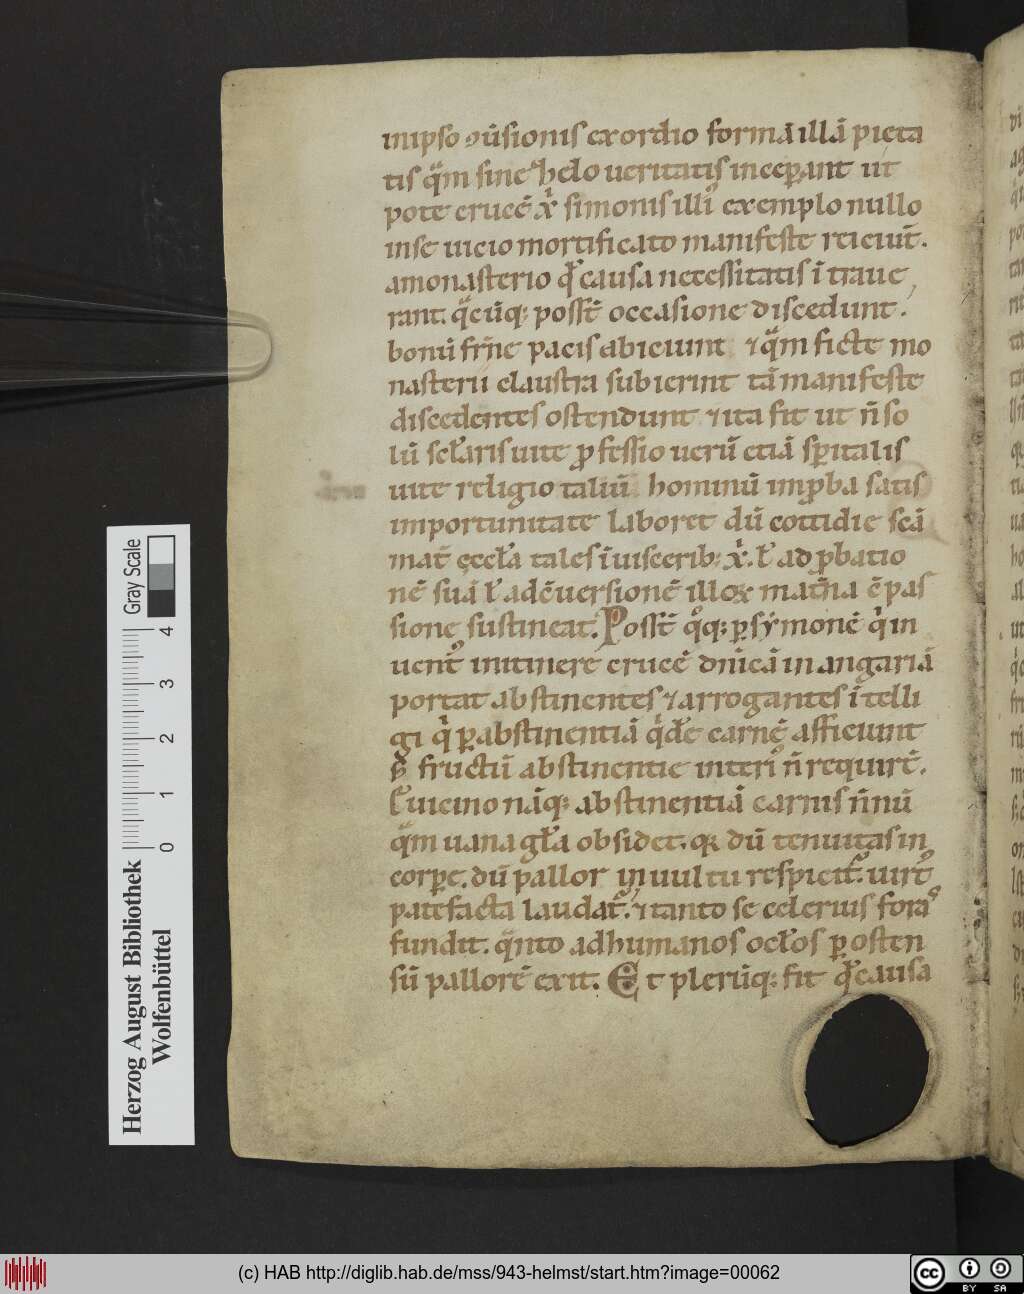 inipso ꝯu̅sionis exordio forma̅ illa̅ pięta
tis qᷓm sine zelo ueritatis inceꝑant ut
pote cruce̅ xp̅i simonis illiꝰ exemplo nullo
inse uicio mortificato manifeste reiciu̅t.
amonasterio qᵈ causa necessitatis i̅traue
rant. qᷓcu̅q; posst̅ occasione discedunt.
bonu̅ frn̅e pacis abiciunt ⁊qᷓm ficte mo
nasterii claustra subierint ta̅ manifeste
discedentes ostendunt ⁊ita fit ut n̅ so
lu̅ scl̅aris uite ꝓfessio ueru̅ etia̅ sꝑitalis
uite religio taliu̅ hominu̅ imꝓba satis
importunitate laboret du̅ cottidie sc̅a
mat̅ ęccl̅a tales i̅uiscerib; xp̅i. l̅ ad ꝓbatio
ne̅ sua̅ l̅ adc̅uersione̅ illoꝝ mat̅na c̅pas
sione sustineat. Posst̅ qͦq; ꝑ sẏmone̅ qͥ in
uentꝰ initinere cruce̅ dn̅ica̅ in angaria̅
portat abstinentes ⁊arrogantes i̅telli
gi qͥ ꝑabstinentia̅ qͥde̅ carne̅ afficiunt
sꝫ fructu̅ abstinentie interiꝰ n̅ requiru̅t.
Cuicino na̅q; abstinentia̅ carnis n̅nu̅
qᷓm uana gl̅a obsidet. qꝛ du̅ tenuitas in
corꝑe. du̅ pallor in uultu respicit᷑. uirtꝰ
patefacta laudat᷑. ⁊tanto se celerius foras
fundit. qᷓnto adhumanos ocl̅os ꝑ osten
su̅ pallore̅ exit. Et pleru̅q; fit qᵈ causa
Herzog August Bibliothek
Wolfenbüttel
0 1 2 3 4
Gray Scale
(c) HAB http://diglib.hab.de/mss/943-helmst/start.htm?image=00062
cc BY SA